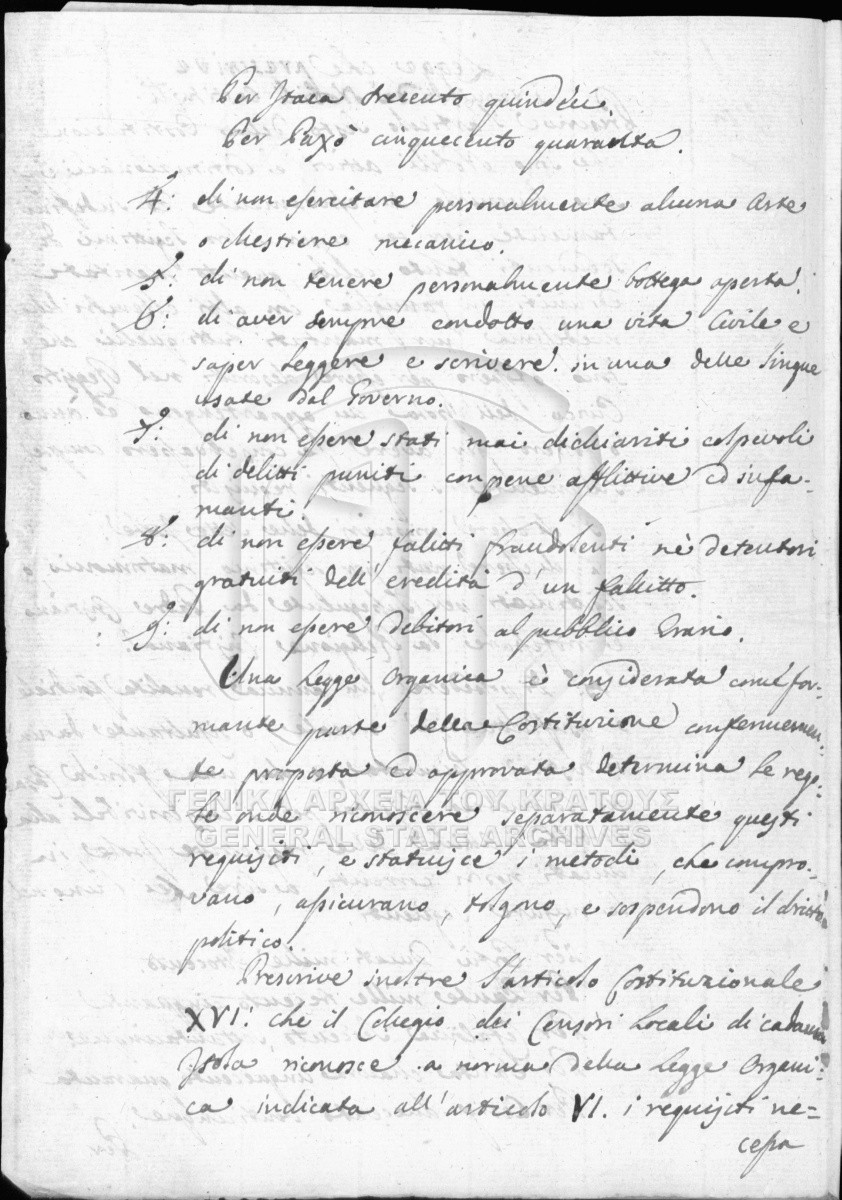 Per Itaca trecento quindéci.
Per Paxò cinquecento quaranta.
4º: di non esercitare personalmente alcuna Arte
o Mestiere mecanico.
5º: di non tenere personalmente bottega aperta.
6º: di aver sempre condotto una vita Civile e
saper leggere e scrivere in una delle lingue
usate dal Governo.
7º: di non essere stati mai dichiariti colpevoli
di delitti puniti con pene afflittive ed infa-
manti.
8º: di non essere falliti fraudolenti nè detentori
gratuiti dell'eredità d'un fallitto.
9º: di non essere debitori al pubblico Erario.
Una legge Organica è considerata com'è for-
mante parte della Costituzione
te proposta ed approvata determina le rego-
le onde riconoscere separatamente questi
requisiti, e statuisce i metodi, che compro-
vano, assicurano, tolgono, e sospendono il diritto
politico.
Prescrive inoltre l'articolo Costituzionale
XVI. che il Collegio dei Censori Locali di cadauna
Isola riconosce a norma della legge Organi-
ca indicata all'articolo VI. i requisiti ne=
cessa
ΓΕΝΙΚΑ ΑΡΧΕΙΑ ΤΟΥ ΚΡΑΤΟΥΣ
GENERAL STATE ARCHIVES